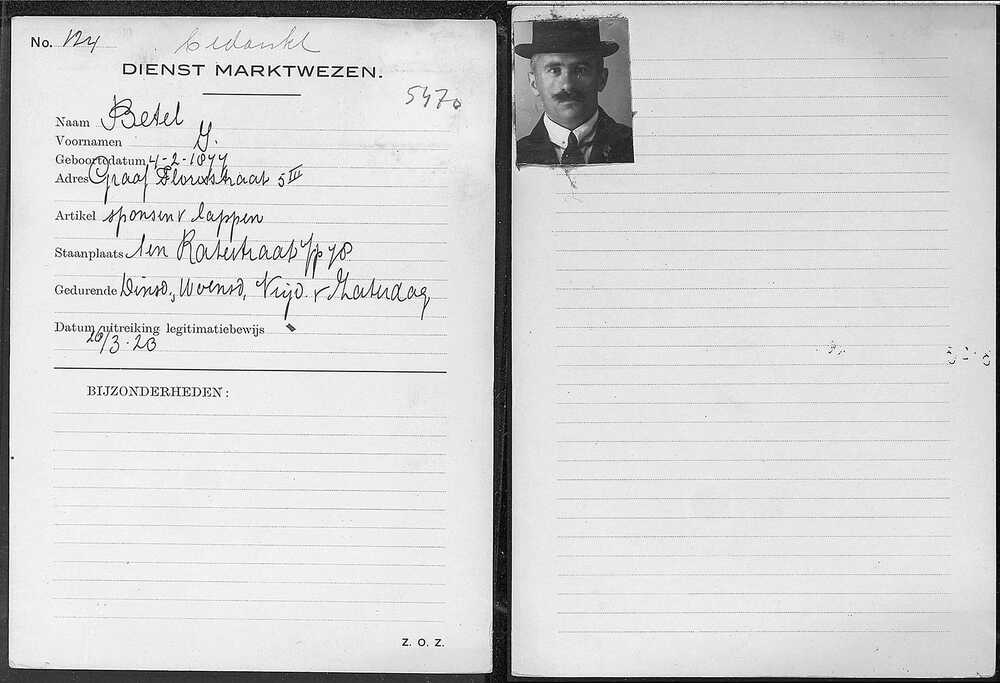 No. 124
bedankt
DIENST MARKTWEZEN.
5470
Naam Betel
Voornamen J.
Geboortedatum 4-2-1877
Adres Graaf Florisstraat 5 III
Artikel sponsen v lappen
Staanplaats Ten Katestraat
Gedurende Dinsd., Woensd., Vrijd. v Zaterdag
Datum uitreiking legitimatiebewijs
26/3-23
BIJZONDERHEDEN:
Z. O. Z.